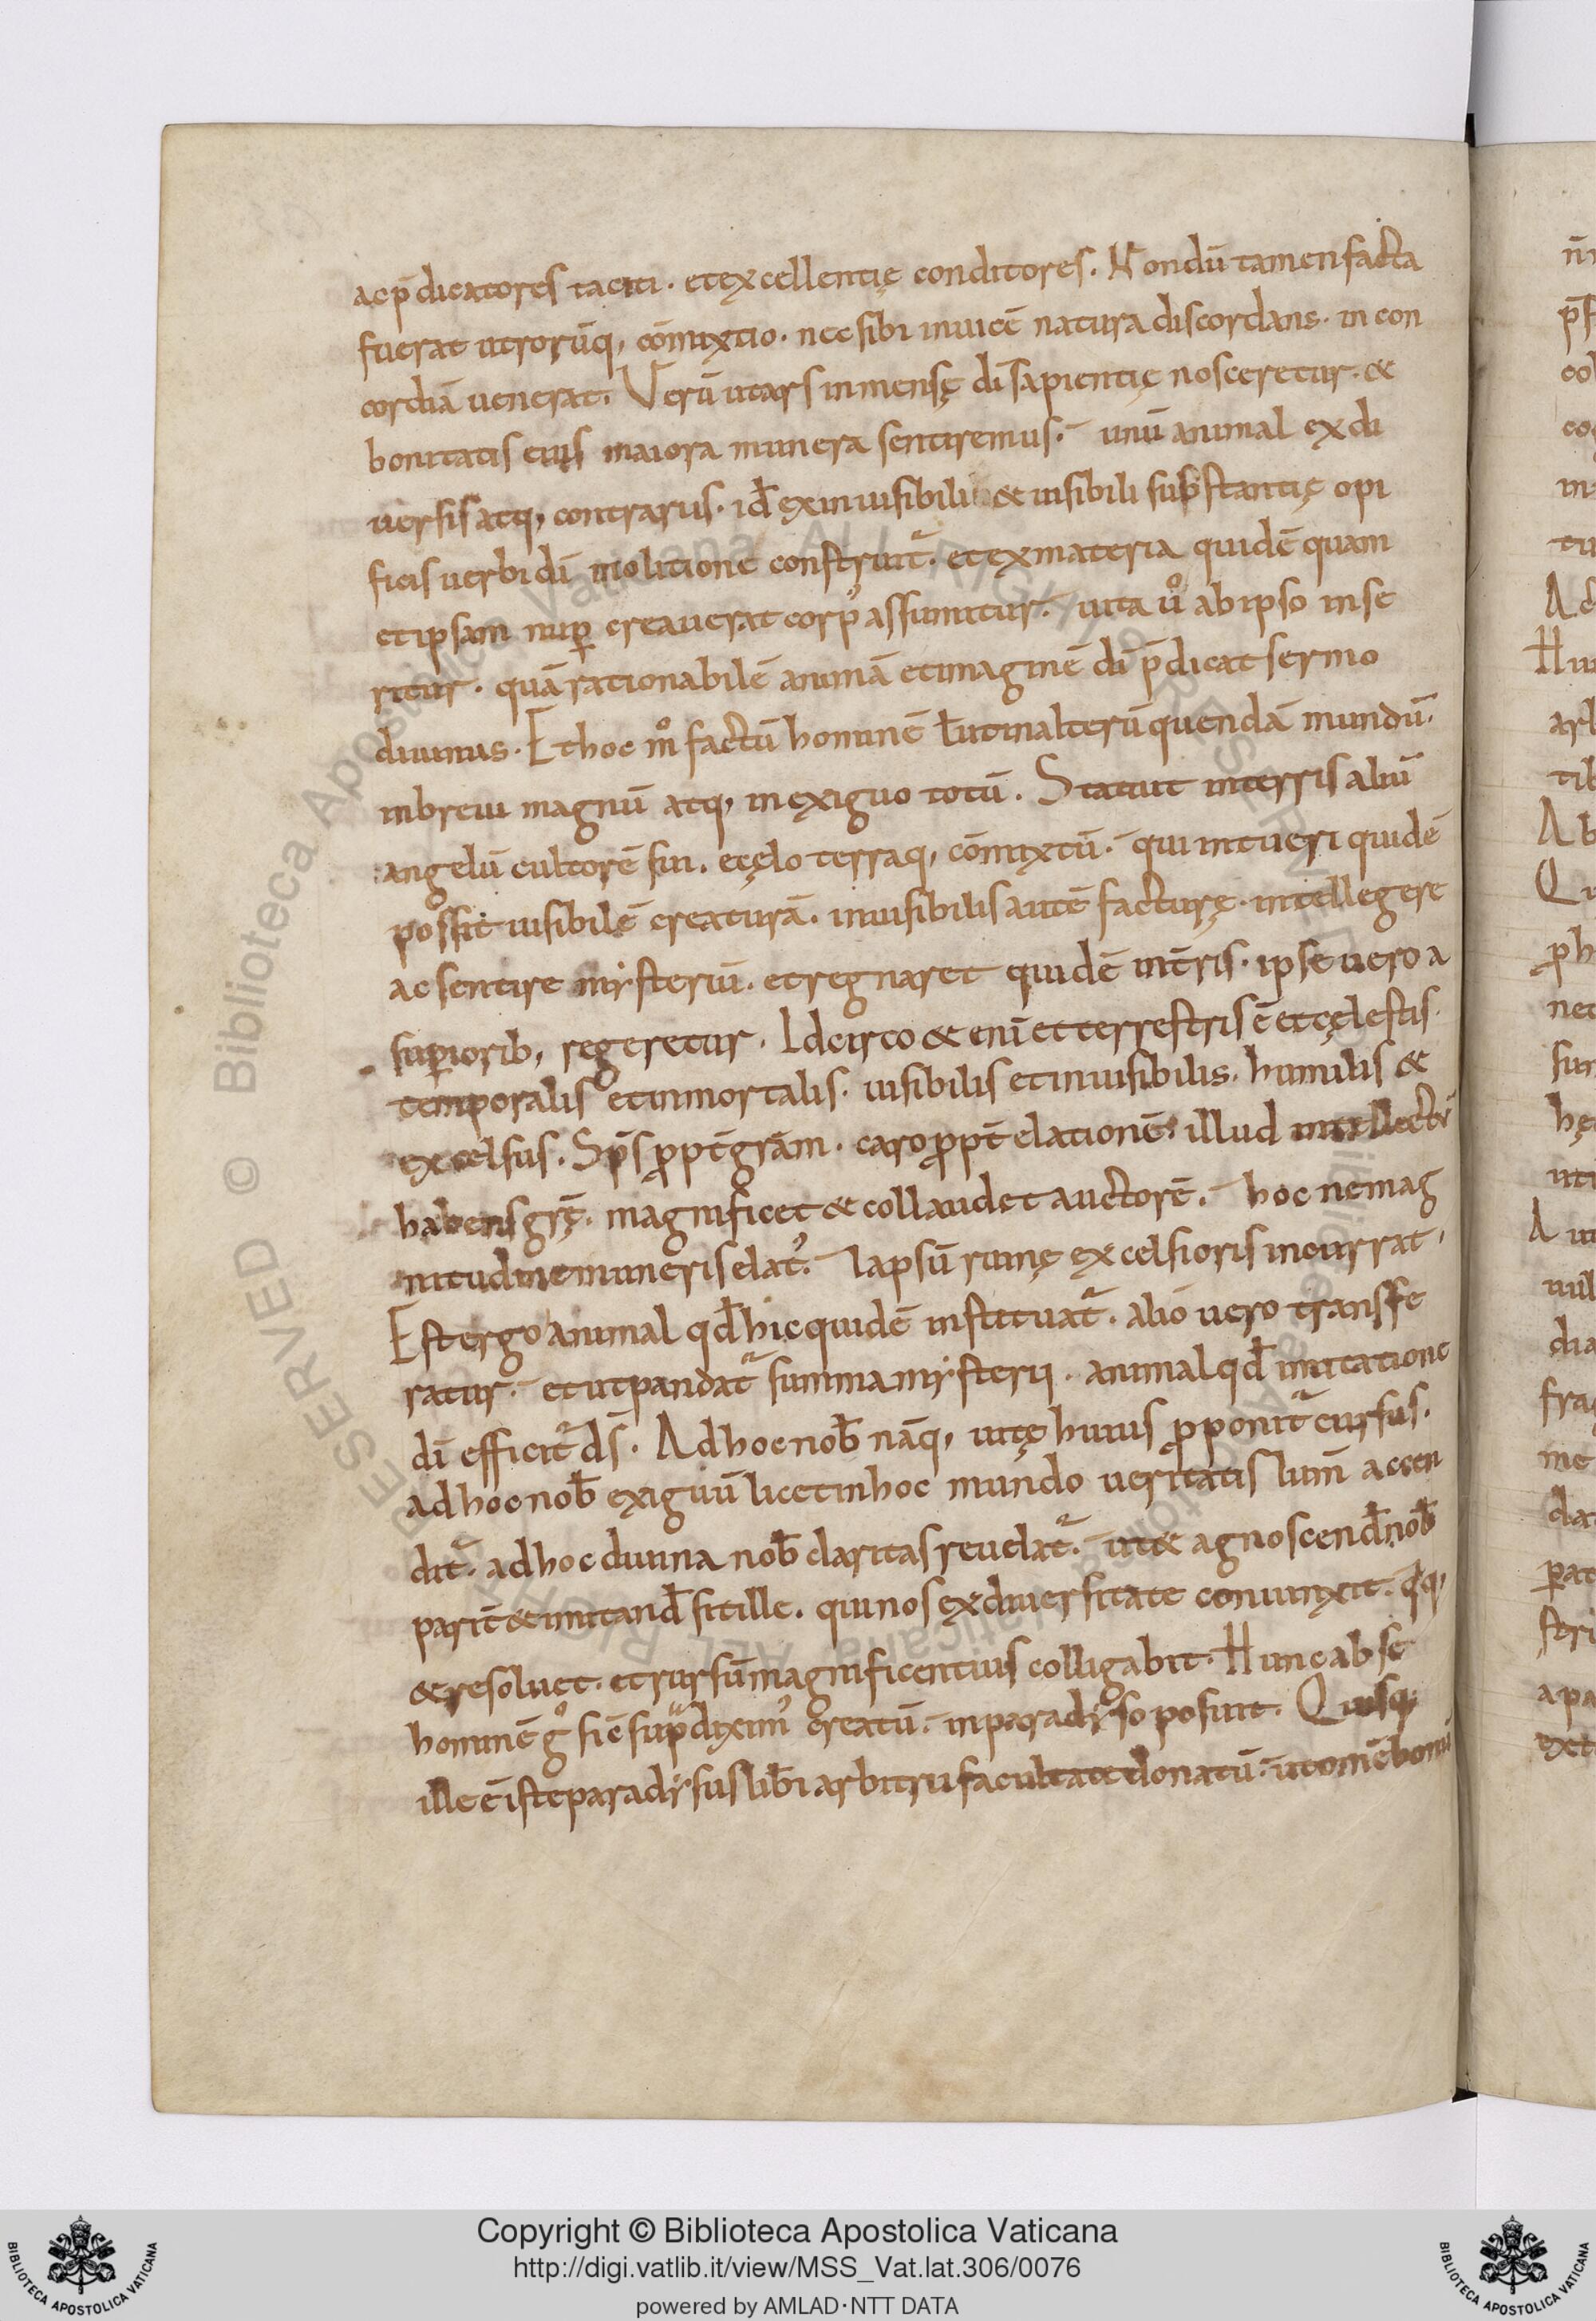 ac p̄dicatores taciti · et excellentię conditores. Nondū tamen facta
fuerat utrorūq, cōmixtio · nec sibi inuicē natura discordans · in con
cordiā uenerat. Verū ut ars inmensę dī sapientię nosceretur · &
bonitatis eius maiora munera sentiremus · unū animal ex di
uersis atq, contrariis · id̄ ex inuisibili & uisibili substantię opi
ficis uerbi dī molitione construit᷑ · et ex materia quidē quam
et ipsam nup̄ creauerat corp᾽ assumitur · uita uº ab ipso inse
ritur · quā rationabilē animā et imaginē dī p̄dicat sermo
diuinus · Et hoc mº factū hominē ł ut in alterū quendā mundū ·
in breui magnū atq, in exiguo totū. Statuit in terris aliū
angelū cultorē sui . et cęlo terraq, cōmixtū · qui intueri quidē
possit uisibilē creaturā · inuisibilis autē facturę · intellegere
ac sentire mysteriū · et regnaret quidē in tr̄ris · ipse uero a
sup̄iorib, regeretur · Idcirco & enī et terrestris ē et cęlestis ·
temporalis et inmortalis · uisibilis et inuisibilis · humilis &
excelsus · Sp̄s ꝓpt̄ grām · caro ꝓpt̄ elationē · illud intellectū
habens grę̄ · magnificet & collaudet auctorē · hoc ne mag
nitudine muneris elat᾽ · lapsū ruinę excelsioris incurrat ·
Est ergo animal qd̄ hic quidē instituat᷑ · alio uero transfe
ratur · et ut pandat᷑ summa mysterii · animal qd̄ imitatione
dī efficit᷑ ds̄ · Ad hoc nob̄ nāq, uitę huius ꝓponit᷑ cursus ·
ad hoc nob̄ exiguū licet in hoc mundo ueritatis lum̄ accen
dit᷑ · ad hoc diuina nob̄ claritas reuelat᷑ · ut & agnoscend̄ nob̄
parit̄ & imitand̄ sit ille · qui nos ex diuersitate coniunxit · q̄q,
& resoluet · et rursū magnificentius colligabit · Hunc ab se
hominē gº sic sup̄ dixim᾽ creatū · in paradyso posuit · Quisq;
ille ē iste paradysus lib̄i arbitrii facultate donatū · ut omē bonū